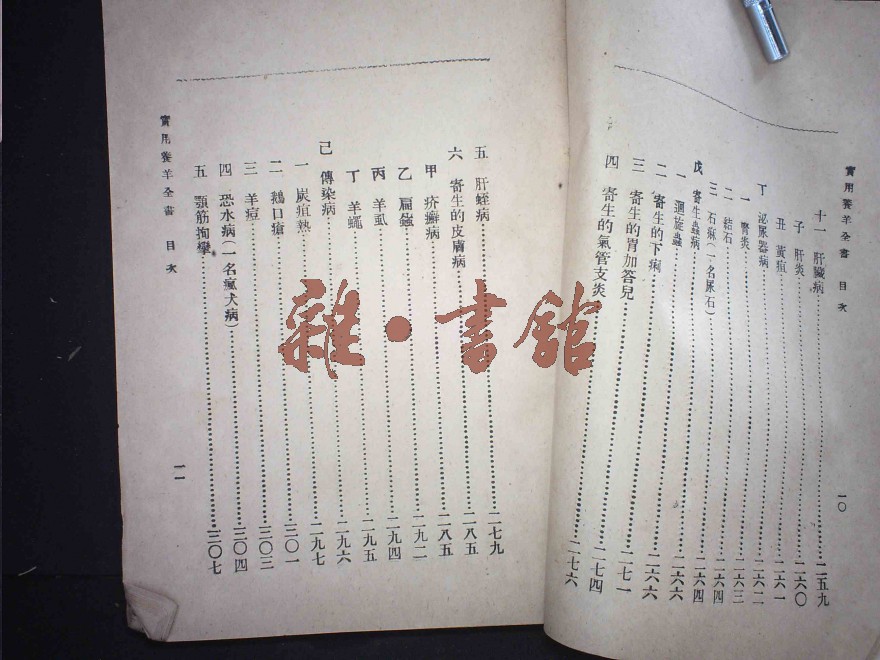 實用養羊全書 目次
一〇
十一 肝臟病 二五九
子 肝炎 二六〇
丑 黃疸 二六一
丁 泌尿器病 二六二
一 腎炎 二六三
二 結石 二六四
三 石痳(一名尿石) 二六四
戊 寄生蟲病 二六六
一 迴旋蟲 二六六
二 寄生的下痢 二六六
三 寄生的胃加答兒 二七一
四 寄生的氣管支炎 二七四
五 肝蛭病 二七九
六 寄生的皮膚病 二八五
甲 疥癬病 二八五
乙 扁蝨 二九二
丙 羊虱 二九四
丁 羊蠅 二九五
己 傳染病 二九六
一 炭疽熱 二九七
二 鵝口瘡 三〇一
三 羊痘 三〇三
四 恐水病(一名瘋犬病) 三〇四
五 顎筋拘攣 三〇七
實用養羊全書 目次
一一
雜·書館